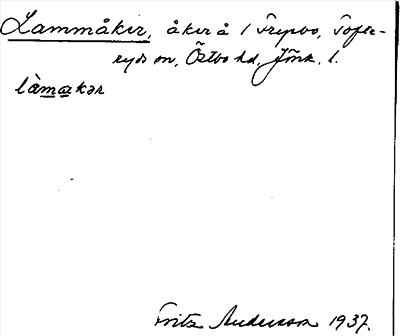 Lammåker, åker å 1 Trepbo, Tofte-
ryds sn, Östbo hd, Jönk. l.
làmakər
Fritz Andersson 1937.